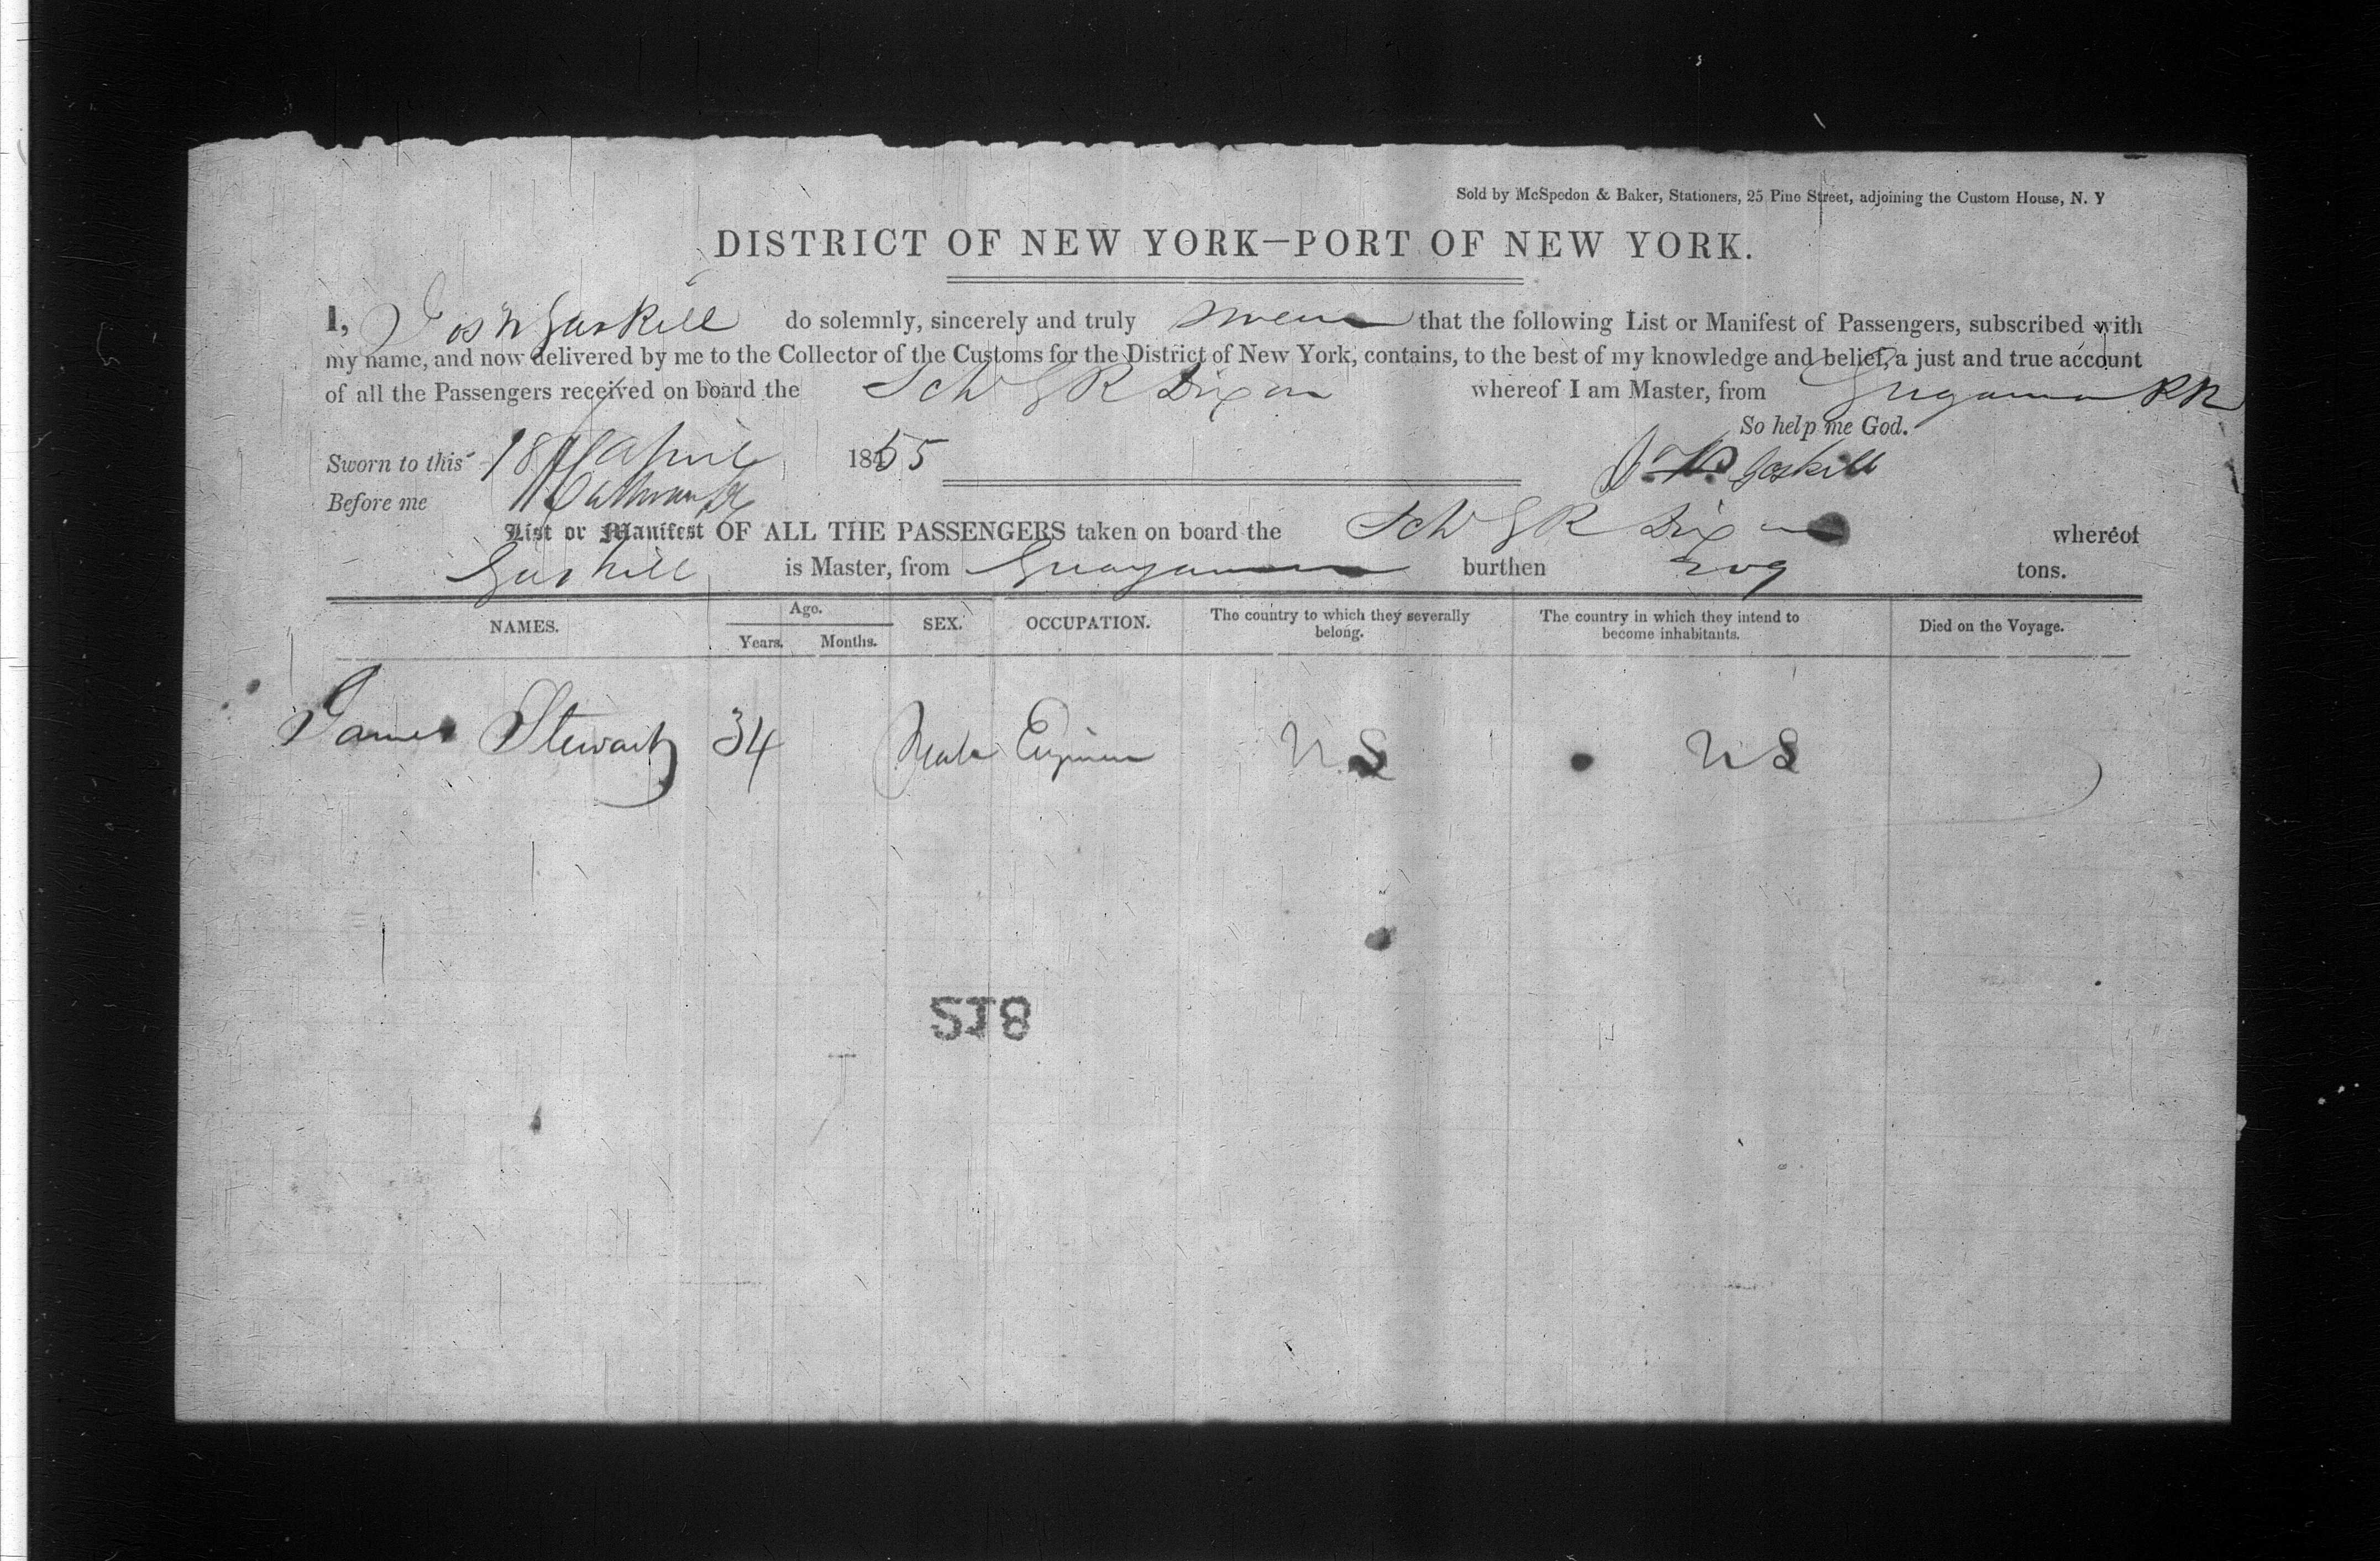 Sold by McSpedon & Baker, Stationers, 25 Pine Street, adjoining the Custom House, N. Y
DISTRICT OF NEW YORK—PORT OF NEW YORK.
I, Jos W Gaskill do solemnly, sincerely and truly swear that the following List or Manifest of Passengers, subscribed with
my name, and now delivered by me to the Collector of the Customs for the District of New York, contains, to the best of my knowledge and belief, a just and true account
of all the Passengers received on board the Sch G R Dixon whereof I am Master, from
So help me God.
Sworn to this 18 April 1855
J. W. Gaskill
Before me
List or Manifest OF ALL THE PASSENGERS taken on board the Sch G R Dixon whereof
Gaskill is Master, from Guayama burthen 209 tons.
NAMES. Age. Years. Months. SEX. OCCUPATION. The country to which they severally belong. The country in which they intend to become inhabitants. Died on the Voyage.
James Stewart 34 Male Engineer US US
218